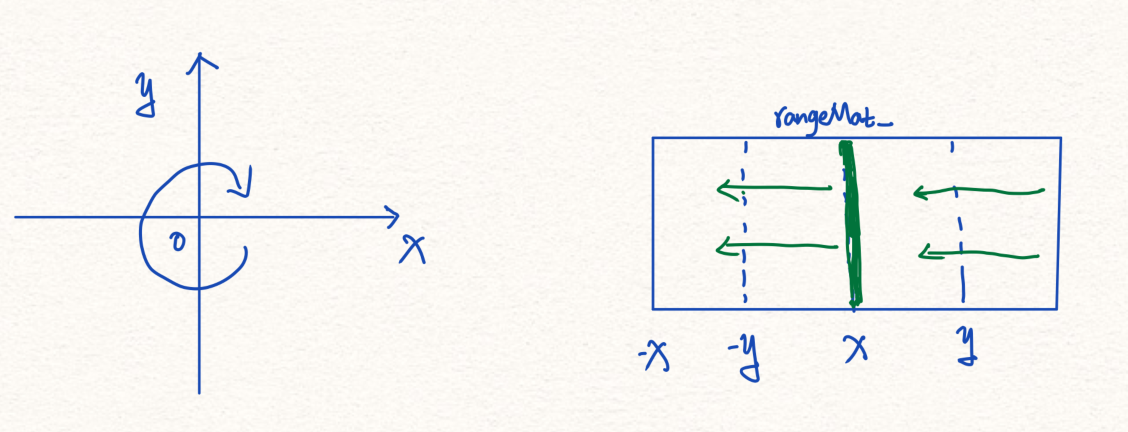 y
0
x
rangeMat_
-x -y x y